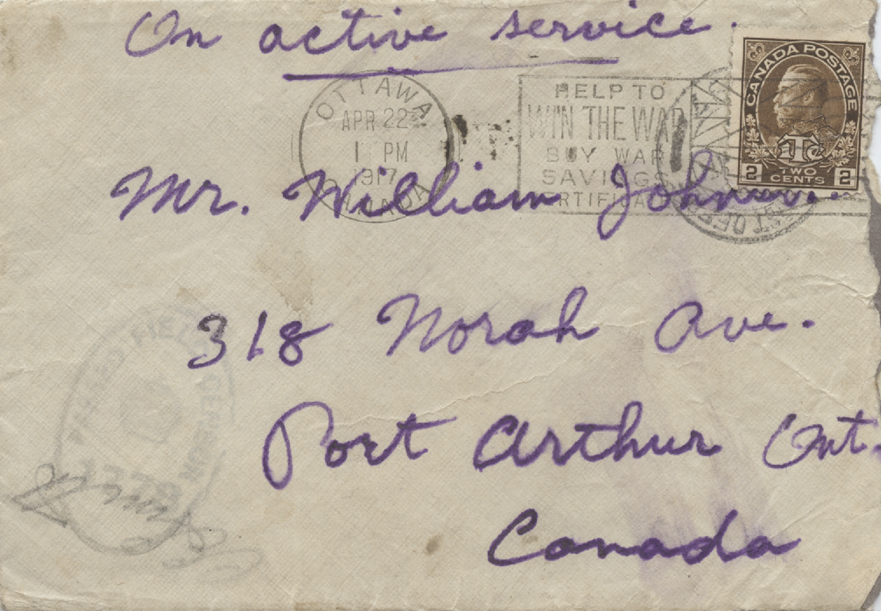 On active service.
OTTAWA
APR 22
1 PM
1917
CANADA
HELP TO
WIN THE WAR
BUY WAR
SAVINGS
CANADA POSTAGE
2 TWO CENTS 2
Mr. William
318 Norah Ave.
Port Arthur Ont.
Canada
FIELD